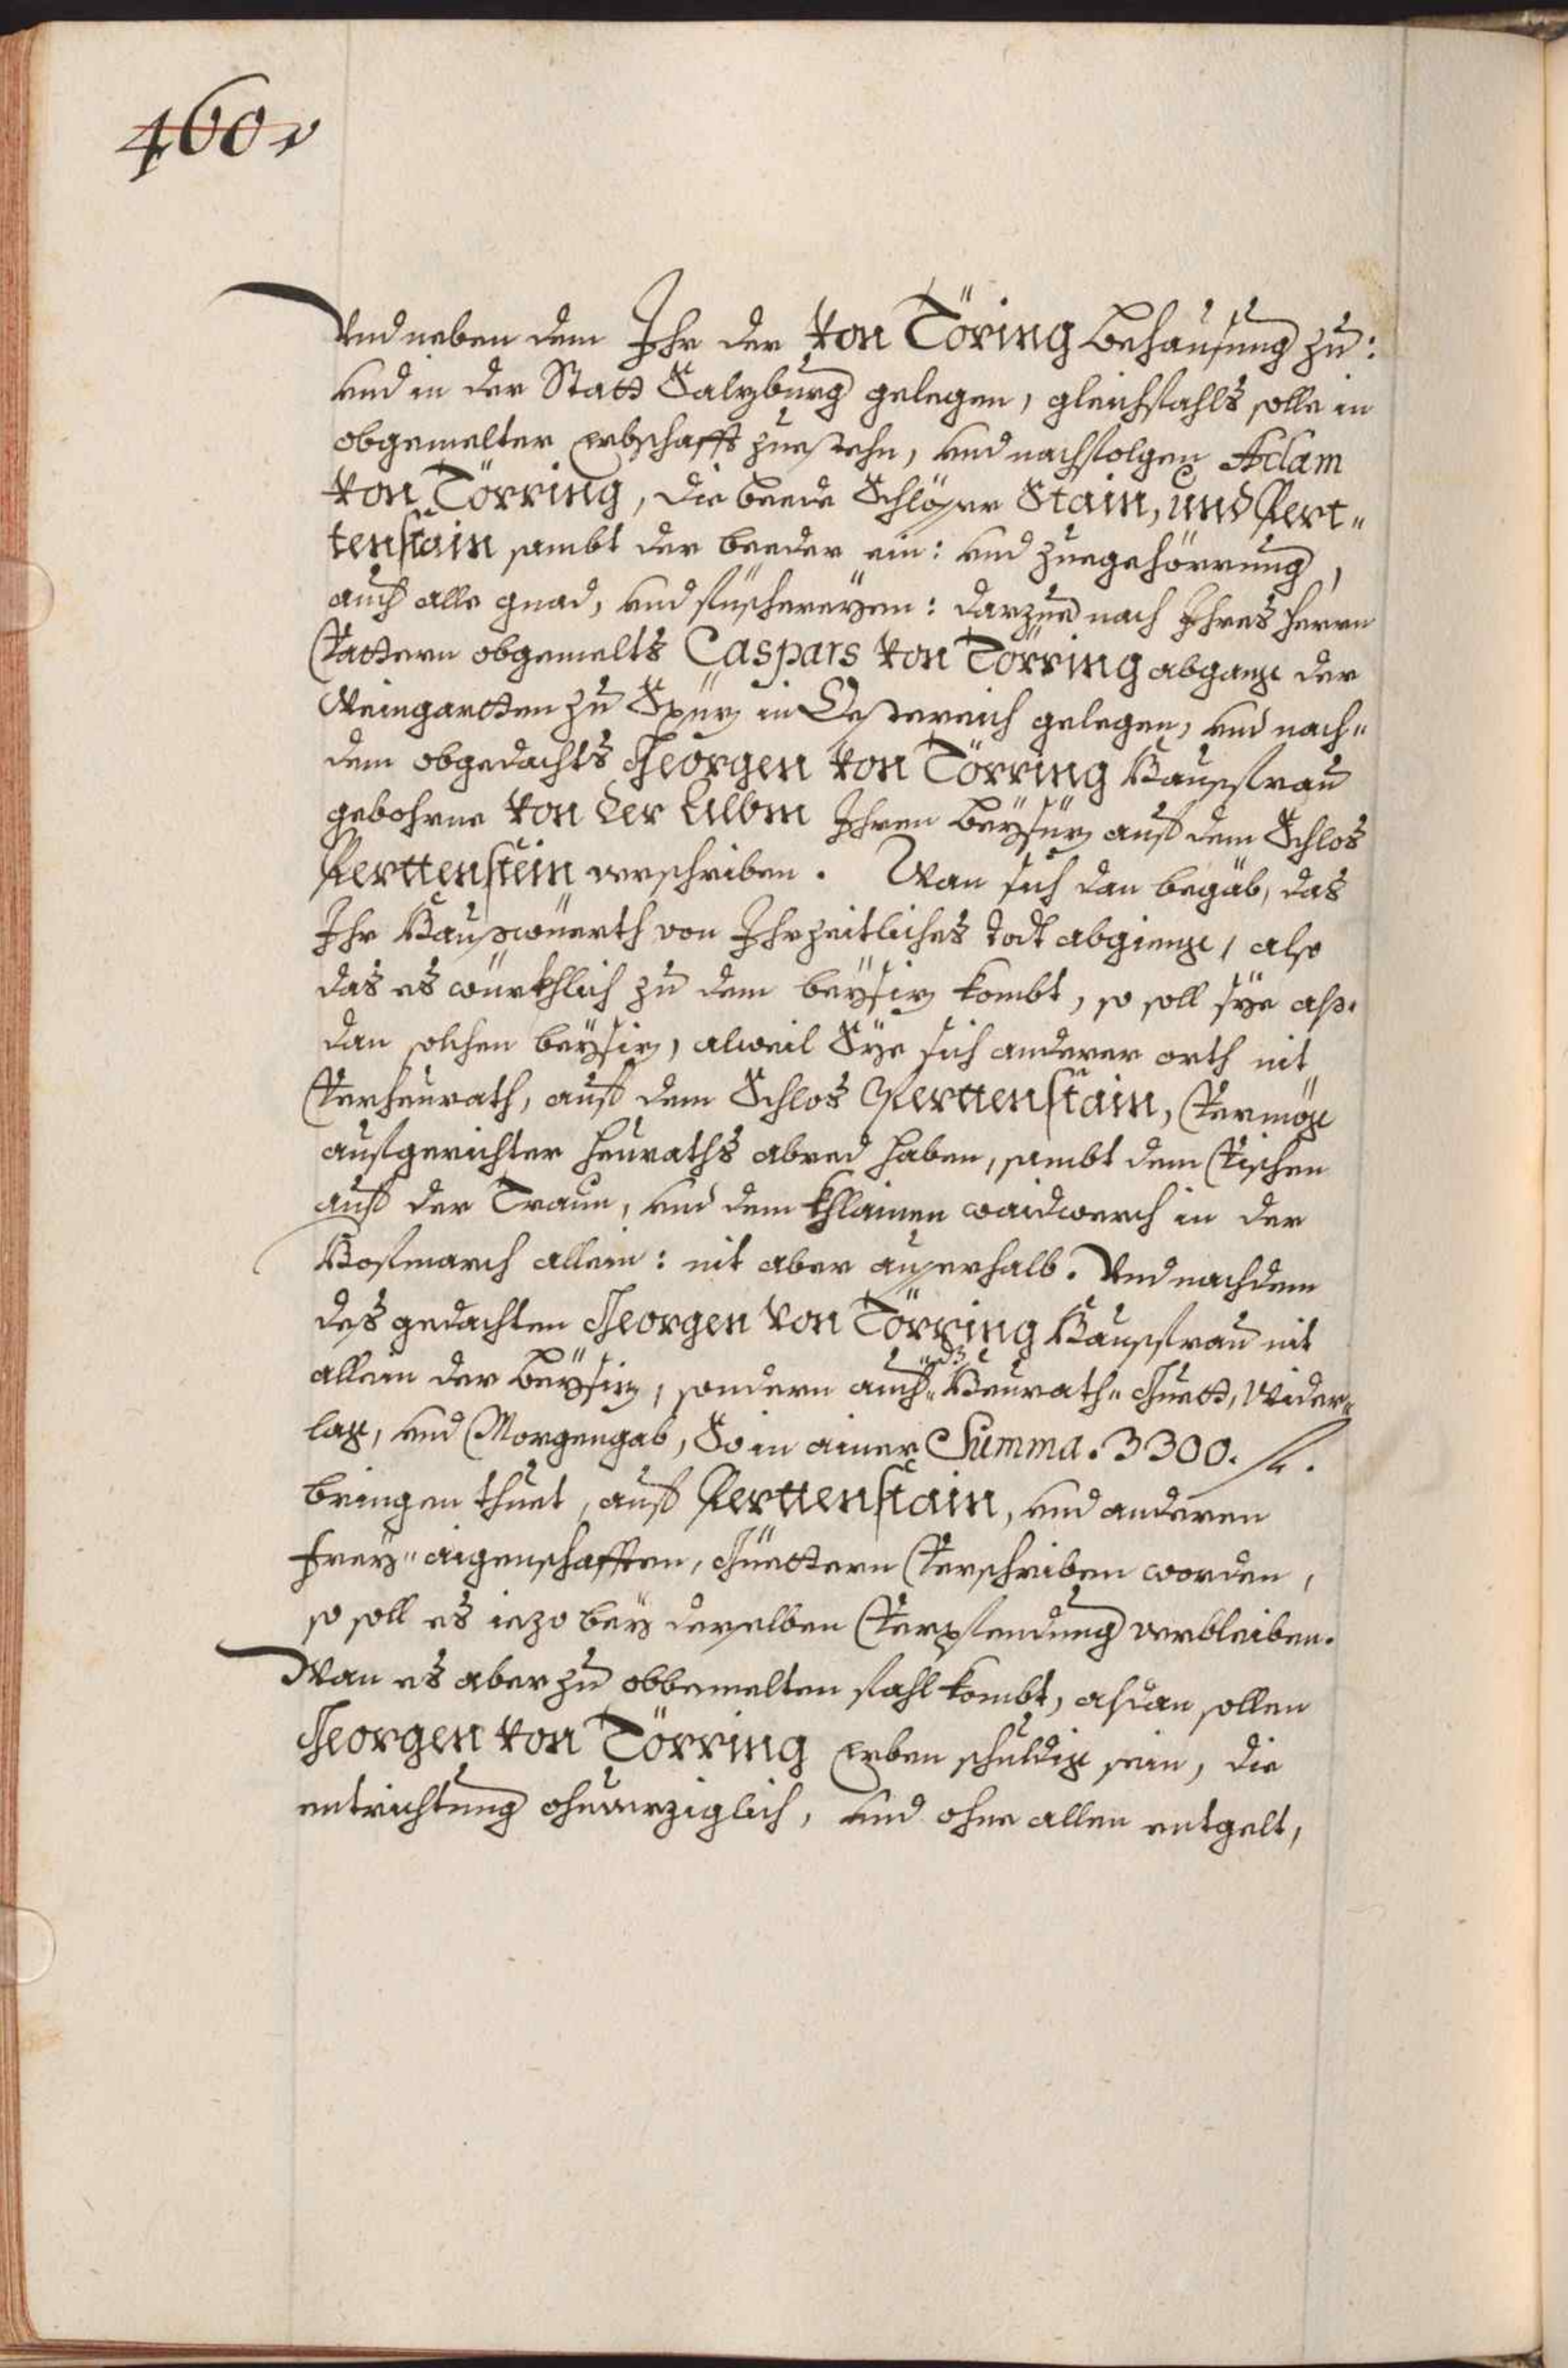 460v
Vnd neben dem Ihr der von Töring behausung zu:
vnd in der Statt Salzburg gelegen, gleichfahls solle in
obgemelter erbschafft zuestehn, vnd nachfolgen Adam
von Törring, die beede Schlösser Stain, und Pert„
tenstain sambt der beeder ein: vnd zuegehörrung,
auch alle gnad, vnd füschereyen: darzue nach Ihres herrn
Vattern obgemelts Caspars von Törring abgang der
Weingartten zu in Oesstereich gelegen, vnd nach„
dem obgedachts Georgen von Törring Haussfrau
gebohrne von der Albm Ihren Beysüz auf dem Schlos
Perttenstein verschriben. Wan sich dan begäb, das
Ihr Hauswürth von Ihr zeitliches todt abgieng, also
das es würkhlich zu dem beysiz kombt, so soll sye alß„
dan solchen beysiz, alweil Sye sich anderer orth nit
Verheurath, auf dem Schlos Perttenstain, Vermög
aufgerichter heuraths abred haben, sambt dem Vischen
auf der Traun, vnd dem khlainen waidwerch in der
Hofmarch allein: nit aber ausserhalb. Vnd nachdem
des gedachten Georgen von Törring Haussfrau nit
allein der Beysiz, sondern auch Heurath„ Guett, Wider„
lag, vnd Morgengab, So in ainer Summa. 3300. fl.
bringen thuet, auf Perttenstain, vnd anderen
frey„ aigenschafften, Güettern Verschriben worden,
so soll es iezo bey derselben Verpfendung verbleiben.
Wan es aber zu obbemelten fahl kombt, alsdan sollen
Georgen von Törring erben schuldig sein, die
entrichtung ohnverziglich, vnd ohne allen entgelt,